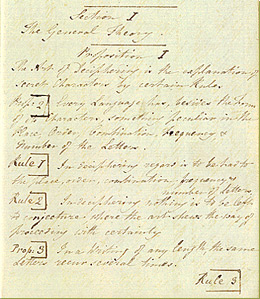 Section I
The General Theory.
Proposition I
The Art of Decyphering is the explanation of
Secret Characters by certain Rules.
Propo: 2 Every Language has, besides the form
of its Characters, something peculiar in the
Place, Order, Combination, frequency &
Number of the Letters.
Rule 1 In decyphering regard is to be had to
the place, order, combination, frequency
number of letters
Rule 2 In decyphering nothing is to be left
to conjecture where the art shews the way of
proceeding with certainty
Propo: 3 In a Writing of any length, the same
Letters recur several times.
Rule 3